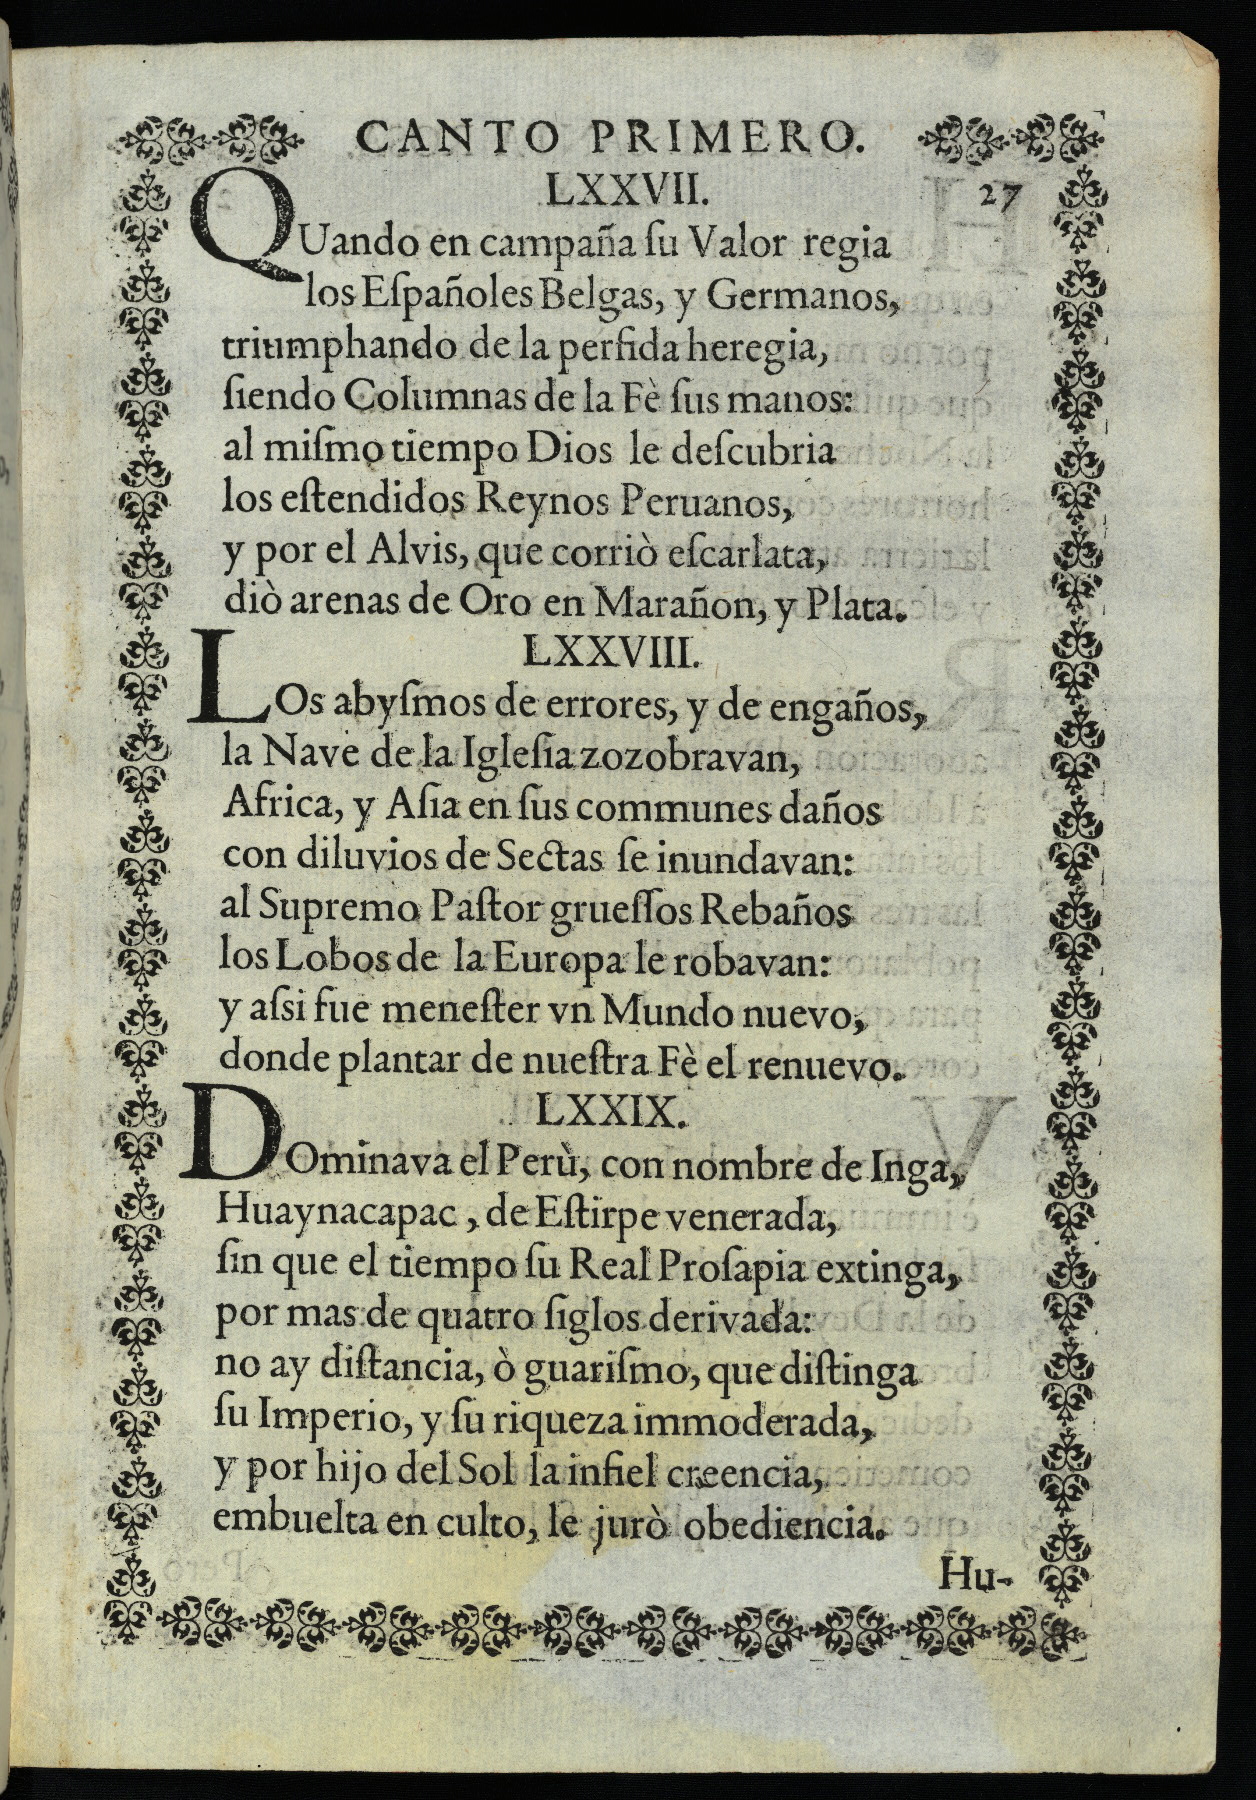 CANTO PRIMERO.
LXXVII. 27
QUando en campaña ſu Valor regia
los Eſpañoles Belgas, y Germanos,
triumphando de la perfida heregia,
ſiendo Columnas de la Fè ſus manos:
al miſmo tiempo Dios le deſcubria
los eſtendidos Reynos Peruanos,
y por el Alvis, que corriò eſcarlata,
diò arenas de Oro en Marañon, y Plata.
LXXVIII.
LOs abyſmos de errores, y de engaños,
la Nave de la Igleſia zozobravan,
Africa, y Aſia en ſus communes daños
con diluvios de Sectas ſe inundavan:
al Supremo Paſtor grueſſos Rebaños
los Lobos de la Europa le robavan:
y aſsi fue meneſter vn Mundo nuevo,
donde plantar de nueſtra Fè el renuevo.
LXXIX.
DOminava el Perù, con nombre de Inga,
Huaynacapac, de Eſtirpe venerada,
ſin que el tiempo ſu Real Proſapia extinga,
por mas de quatro ſiglos derivada:
no ay diſtancia, ò guariſmo, que diſtinga
ſu Imperio, y ſu riqueza immoderada,
y por hijo del Sol la infiel creencia,
embuelta en culto, le jurò obediencia.
Hu-